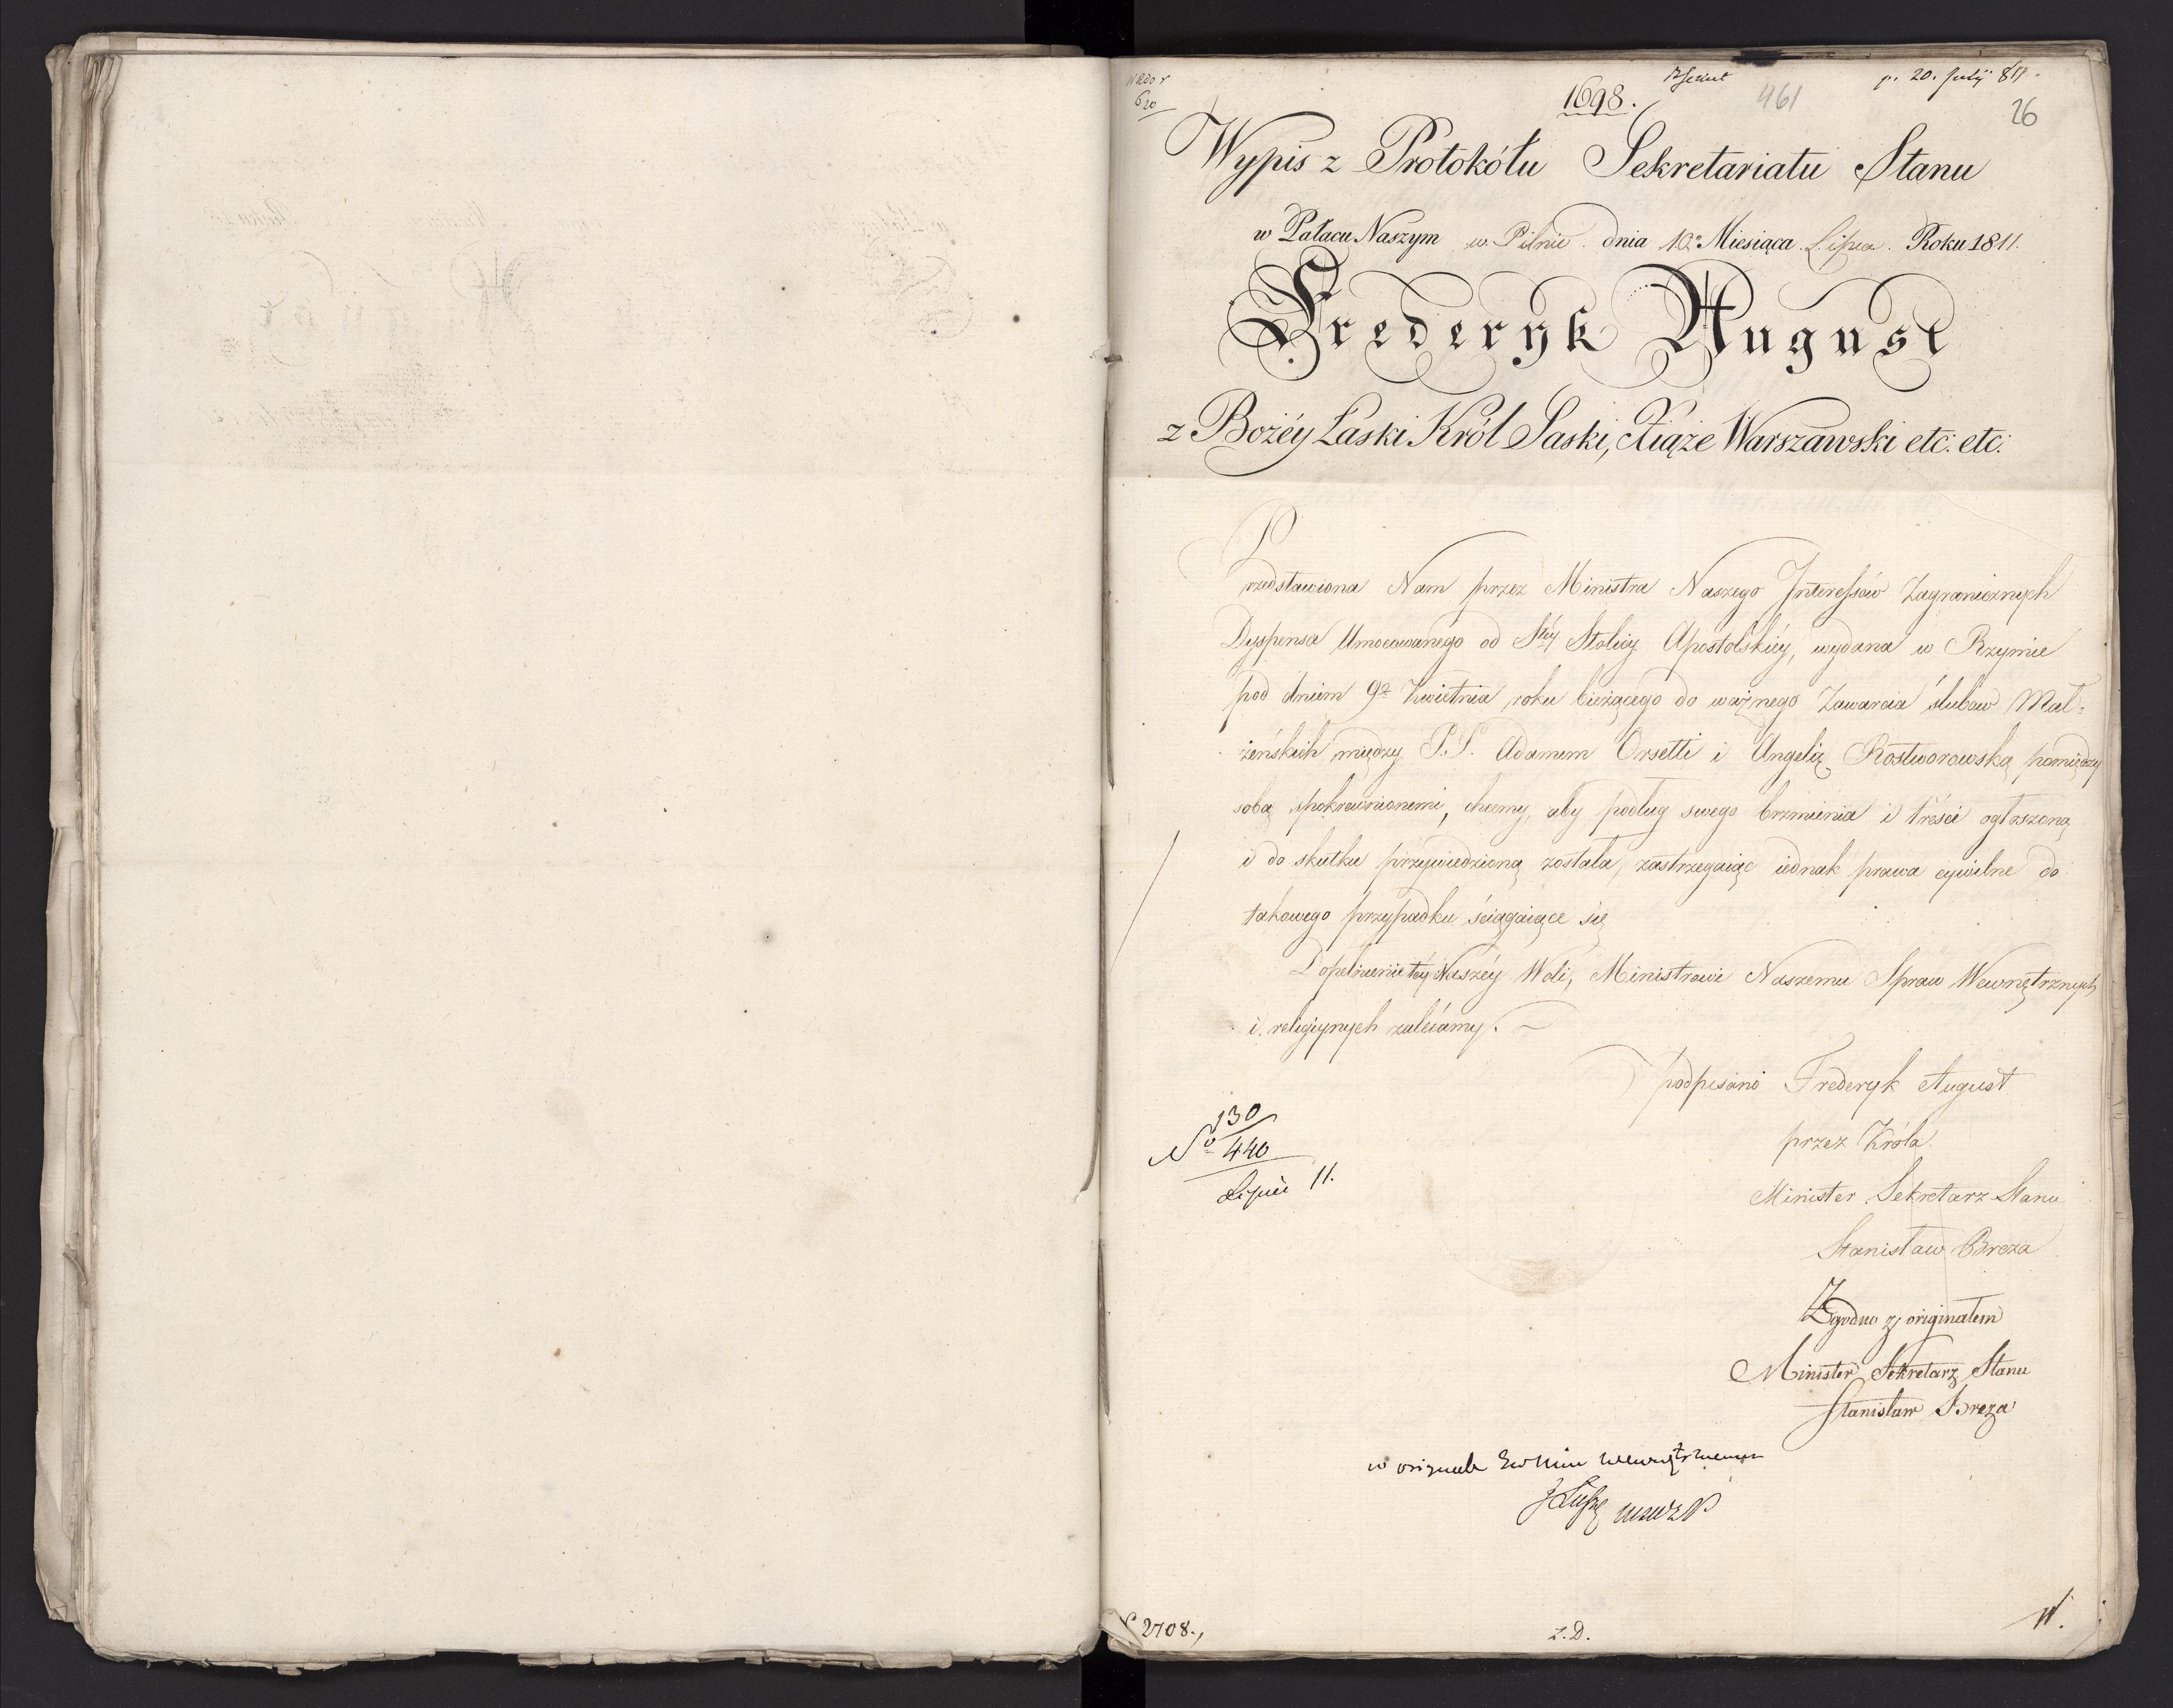 620
1698.
461
p. 20. July 811.
26
Wypis z Protokółu Sekretariatu Stanu
w Pałacu Naszym w. Pilnic. dnia 10.º Miesiąca Lipca. Roku 1811.
Frederyk August
z Bożéy Łaski Król Saski, Xiąże Warszawski etc: etc:
Przedstawiona Nam przez Ministra Naszego Interessów Zagranicznych
Dyspensa Umocowanego od Stéy Stolicy Apostolskiéy, wydana w Rzymie
pod dniem 9º Kwietnia roku bieżącego do ważnego Zawarcia ślubów Mał-
żeńskich między P.P. Adamem Orsetti i Angelią Rostworowską pomiędzy
sobą spokrewnionemi, chcemy, aby podług swego brzmienia i treści ogłoszoną
i do skutku przywiedzioną została, zastrzegaiąc iednak prawa cywilne do
takowego przypadku ściągaiące się
Dopełnienie téy Naszéy Woli, Ministrowi Naszemu Spraw Wewnętrznych
i religiynych zalecamy.
podpisano Frederyk August
przez Króla
Minister Sekretarz Stanu
Stanisław Breza
130
Nº 440
Lipiec 11.
Zgodno z originałem
Minister Sekretarz Stanu
Stanisław Breza
2708.,
z. D.